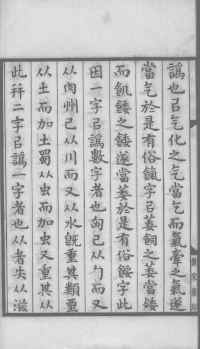 譌也㠯气化之气當乞而氣廩之氣遂
當气於是有俗餼字㠯萎飼之萎當餧
而飢餧之餧遂當萎於是有俗餒字此
因一字㠯譌數字者也匈已从勹而又
从肉州已从川而又从水旣重其類
从土而加土蜀从虫而加虫又重其从
此拜二字㠯譌一字者也从者失从滋